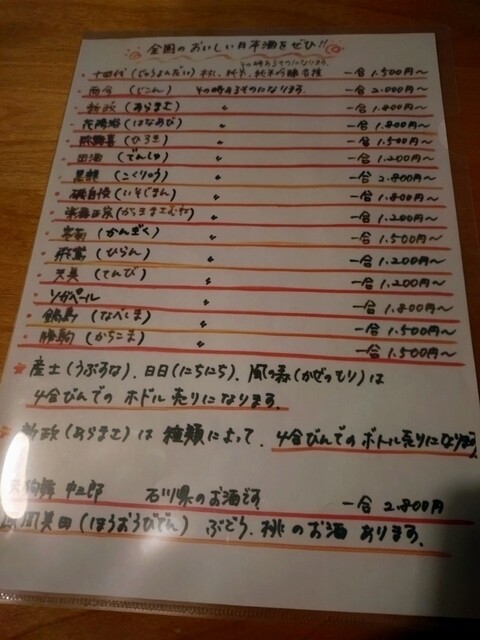 全国のおいしい日本酒をぜひ!!
その時あるものになります。
・十四代(じゅうよんだい) 本丸、純米、純米吟醸各種 一合 1.500円〜
・而今(じこん) その時あるものになります。 一合 2.000円〜
・新政(あらまさ) 〃 一合 1.800円〜
・花陽浴(はなあび) 〃 一合 1.800円〜
・飛露喜(ひろき) 〃 一合 1.500円〜
・田酒(でんしゅ) 〃 一合 1.200円〜
・黒龍(こくりゅう) 〃 一合 2.800円〜
・磯自慢(いそじまん) 〃 一合 1.800円〜
・(からはまさむね) 〃 一合 1.200円〜
・寒菊(かんぎく) 〃 一合 1.500円〜
・飛鸞(ひらん) 〃 一合 1.200円〜
・天美(てんび) 〃 一合 1.200円〜
・ソガペール 〃 一合 1.800円〜
・鍋島(なべしま) 〃 一合 1.500円〜
・勝駒(かちこま) 〃 一合 1.500円〜
☆産土(うぶすな)、日日(にちにち)、風の森(かぜのもり)は
4合びんでの ボトル売りになります。
☆新政(あらまさ)は 種類によって、4合びんでの ボトル売りになります
天狗舞 中三郎 石川県のお酒です 一合 2.800円
鳳凰美田(ほうおうびでん) ぶどう、桃のお酒 あります。